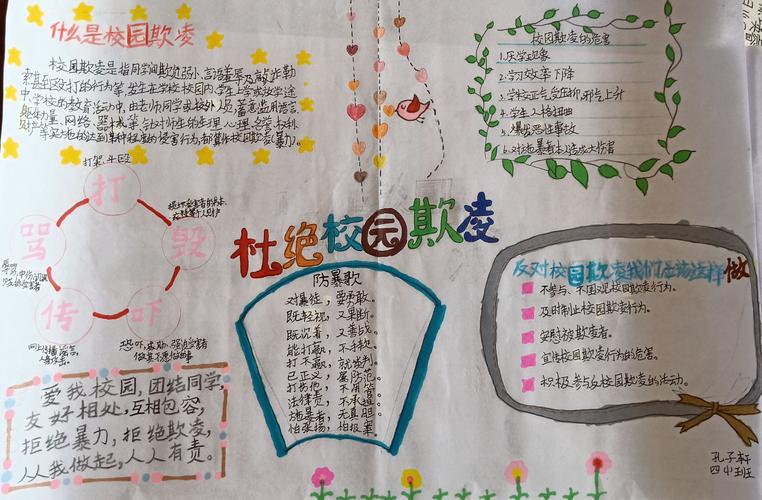 什么是校园欺凌
校园欺凌是指同学间欺负弱小、言语羞辱及敲诈勒
索甚至殴打的行为等，发生在学校校园内、学生上学或放学途
中、学校的教育活动中，由老师、同学或校外人员，蓄意滥用语言、
躯体力量、网络、器械等，针对师生的生理、心理、名誉、权利、
财产等实施的达到某种程度的侵害行为，都算作校园欺凌（暴力）。
校园欺凌的危害
1、厌学现象
2、学习效率下降
3、学校正气受压抑，邪气上升
4、学生人格扭曲
5、爆发恶性事故
6、对施暴者本人造成大伤害
打架、斗殴
打
骂
毁
传
吓
恐吓、威胁、强迫受害者
做其不愿做的事
杜绝校园欺凌
防暴歌
对暴徒，要勇敢。
既轻视，又果断。
既沉着，又善战。
能打赢，不手软。
打不赢，就谈判。
已正义，属防范。
打伤他，不用管。
法律责，不承担。
施暴者，无真胆。
怕张扬，怕报案。
反对校园欺凌我们应该这样做
不参与、不围观校园欺凌行为。
及时制止校园欺凌行为。
安慰被欺凌者。
宣传校园欺凌行为的危害。
积极参与反校园欺凌的活动。
爱我校园，团结同学，
友好相处，互相包容，
拒绝暴力，拒绝欺凌，
人人我做起，人人有责。
孔子轩
四（4）班